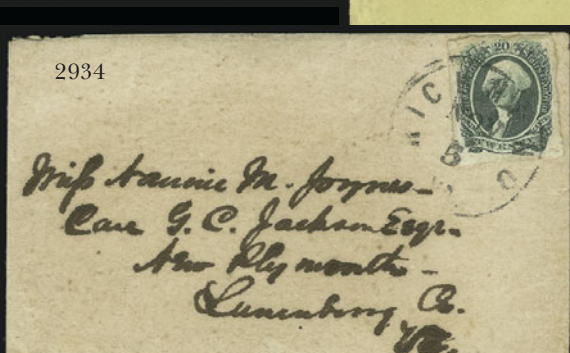 2934
20
RIC
5
Miss Nannie M. Joynes
Care G. C. Jackson Esqr.
New Plymouth
Lunenburg Co.
Va.